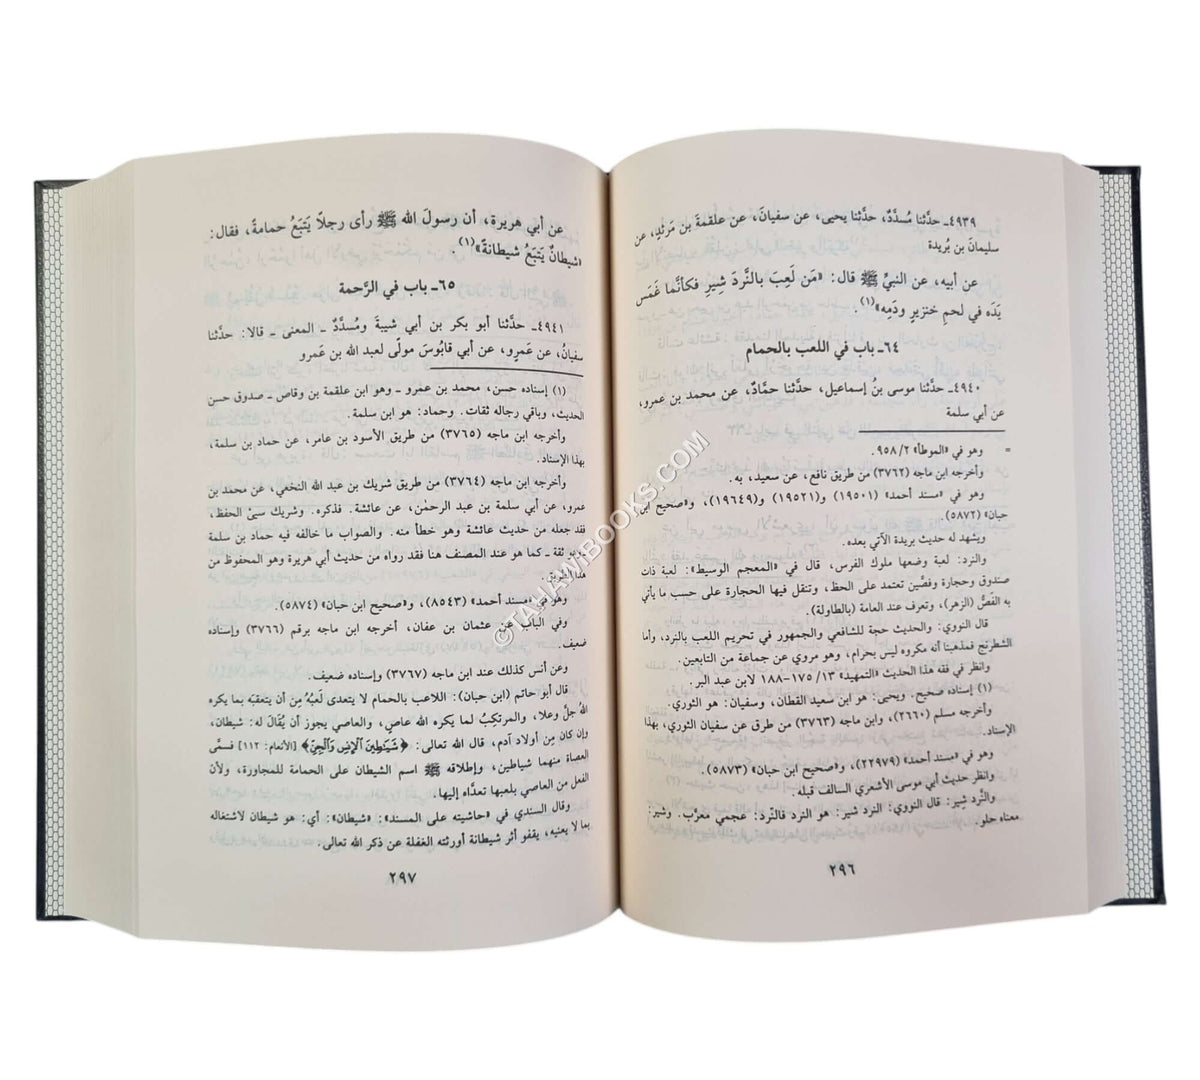 ٤٩٣٩ـ حدَّثنا مُسدَّدٌ، حدَّثنا يحيى، عن سفيانَ، عن علقمةَ بن مَرثَدٍ، عن
سليمانَ بن بُريدة
عن أبيه، عن النبيِّ ﷺ قال: «مَن لَعِبَ بالنَّردَ شِيرِ فكأنَّما غَمَسَ
يَدَه في لحمِ خنزيرٍ ودَمِه»(١).
٦٤ـ باب في اللعب بالحمام
٤٩٤٠ـ حدَّثنا موسى بنُ إسماعيل، حدَّثنا حمَّادٌ، عن محمد بن عمرو،
عن أبي سلمة
= وهو في «الموطأ» ٩٥٨/٢.
وأخرجه ابن ماجه (٣٧٦٢) من طريق نافع، عن سعيد، به.
وهو في «مسند أحمد» (١٩٥٠١) و(١٩٥٢١) و(١٩٦٤٩)، و«صحيح ابن
حبان» (٥٨٧٢).
ويشهد له حديث بريدة الآتي بعده.
والنرد: لعبة وضعها ملوك الفرس، قال في «المعجم الوسيط»: لعبة ذات
صندوق وحجارة وفصَّين تعتمد على الحظ، وتنقل فيها الحجارة على حسب ما يأتي
به الفَصُّ (الزهر)، وتعرف عند العامة (بالطاولة).
قال النووي: والحديث حجة للشافعي والجمهور في تحريم اللعب بالنرد، وأما
الشطرنج فمذهبنا أنه مكروه ليس بحرام، وهو مروي عن جماعة من التابعين.
وانظر في فقه هذا الحديث «التمهيد» ١٣/ ١٧٥-١٨٨ لابن عبد البر.
(١) إسناده صحيح. ويحيى: هو ابن سعيد القطان، وسفيان: هو الثوري.
وأخرجه مسلم (٢٦٦٠)، وابن ماجه (٣٧٦٣) من طرق عن سفيان الثوري، بهذا
الإسناد.
وهو في «مسند أحمد» (٢٢٩٧٩)، و«صحيح ابن حبان» (٥٨٧٣).
وانظر حديث أبي موسى الأشعري السالف قبله.
والنَّرد شير: قال النووي: النرد شير: هو النرد فالنَّرد: عجمي معرَّب. وشير:
معناه حلو.
٢٩٦
عن أبي هريرة، أن رسولَ الله ﷺ رأى رجلاً يَتبَعُ حمامةً، فقال:
«شيطانٌ يَتبَعُ شيطانةً»(١).
٦٥ـ باب في الرَّحمة
٤٩٤١ـ حدَّثنا أبو بكر بن أبي شيبةَ ومُسدَّدٌ ـ المعنى ـ قالا: حدَّثنا
سفيانُ، عن عَمرٍو، عن أبي قابُوسَ مولًى لعبد الله بن عَمرو
(١) إسناده حسن، محمد بن عمرو ـ وهو ابن علقمة بن وقاص ـ صدوق حسن
الحديث، وباقي رجاله ثقات. وحماد: هو ابن سلمة.
وأخرجه ابن ماجه (٣٧٦٥) من طريق الأسود بن عامر، عن حماد بن سلمة،
بهذا الإسناد.
وأخرجه ابن ماجه (٣٧٦٤) من طريق شريك بن عبد الله النخعي، عن محمد بن
عمرو، عن أبي سلمة بن عبد الرحمٰن، عن عائشة. فذكره. وشريك سيئ الحفظ،
فقد جعله من حديث عائشة وهو خطأ منه. والصواب ما خالفه فيه حماد بن سلمة
ـ وهو ثقة ـ كما هو عند المصنف هنا فقد رواه من حديث أبي هريرة وهو المحفوظ من
هذا الطريق.
وهو في «مسند أحمد» (٨٥٤٣)، و«صحيح ابن حبان» (٥٨٧٤).
وفي الباب عن عثمان بن عفان، أخرجه ابن ماجه برقم (٣٧٦٦) وإسناده
ضعيف.
وعن أنس كذلك عند ابن ماجه (٣٧٦٧) وإسناده ضعيف.
قال أبو حاتم (ابن حبان): اللاعب بالحمام لا يتعدى لَعِبُه مِن أن يتعقبَه بما يكره
اللهُ جلَّ وعلا، والمرتكِبُ لما يكره الله عاصٍ، والعاصي يجوز أن يُقَالَ له: شيطان،
وإن كان مِن أولاد آدم، قال الله تعالى: ﴿شَيَٰطِينَ ٱلْإِنسِ وَٱلْجِنِّ﴾ [الأنعام: ١١٢] فسمَّى
العصاة منهما شياطين، وإطلاقه ﷺ اسم الشيطان على الحمامة للمجاورة، ولأن
الفعل من العاصي بلعبها تعدَّاه إليها.
وقال السندي في «حاشيته على المسند»: «شيطان»: أي: هو شيطان لاشتغاله
بما لا يعنيه، يقفو أثر شيطانة أورثته الغفلة عن ذكر الله تعالى.
٢٩٧
©TAHAWIBOOKS.COM